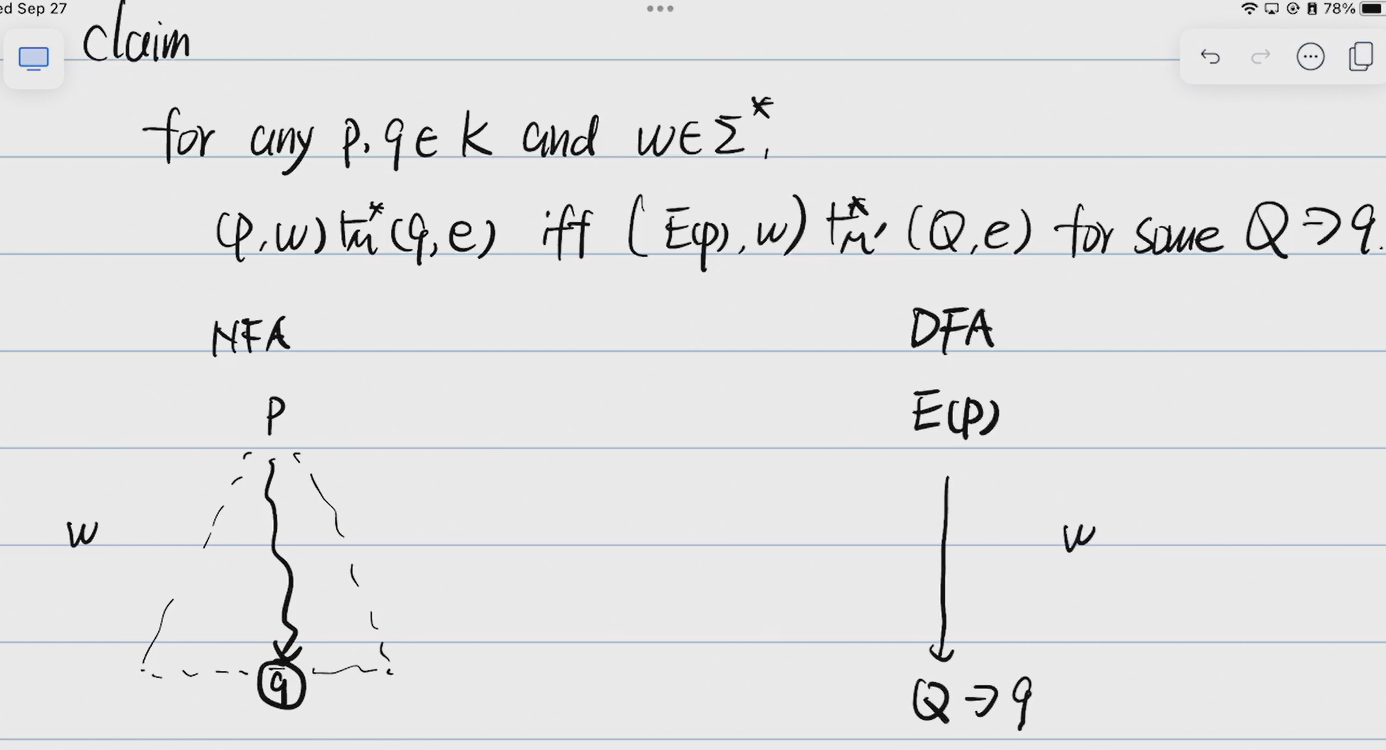 ed Sep 27
78%
Claim
for any p, q ∈ K and w ∈ Σ*,
(p, w) ⊢*M (q, e) iff (E(p), w) ⊢*M' (Q, e) for some Q ∋ q.
NFA DFA
P E(p)
w w
q Q ∋ q